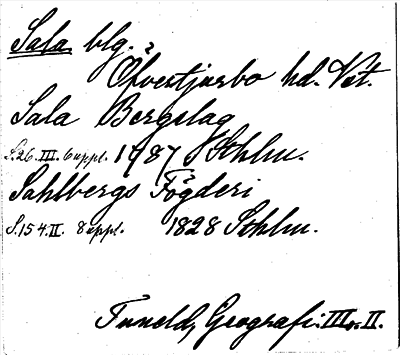 Sala blg.
Öfvertjurbo hd. Vst.
Sala Bergslag
S.26.III. 6 uppl. 1787 Sthlm.
Sahlbergs Fögderi
S.154.II. 8 uppl. 1828 Sthlm.
Tuneld, Geografi. III o. II.